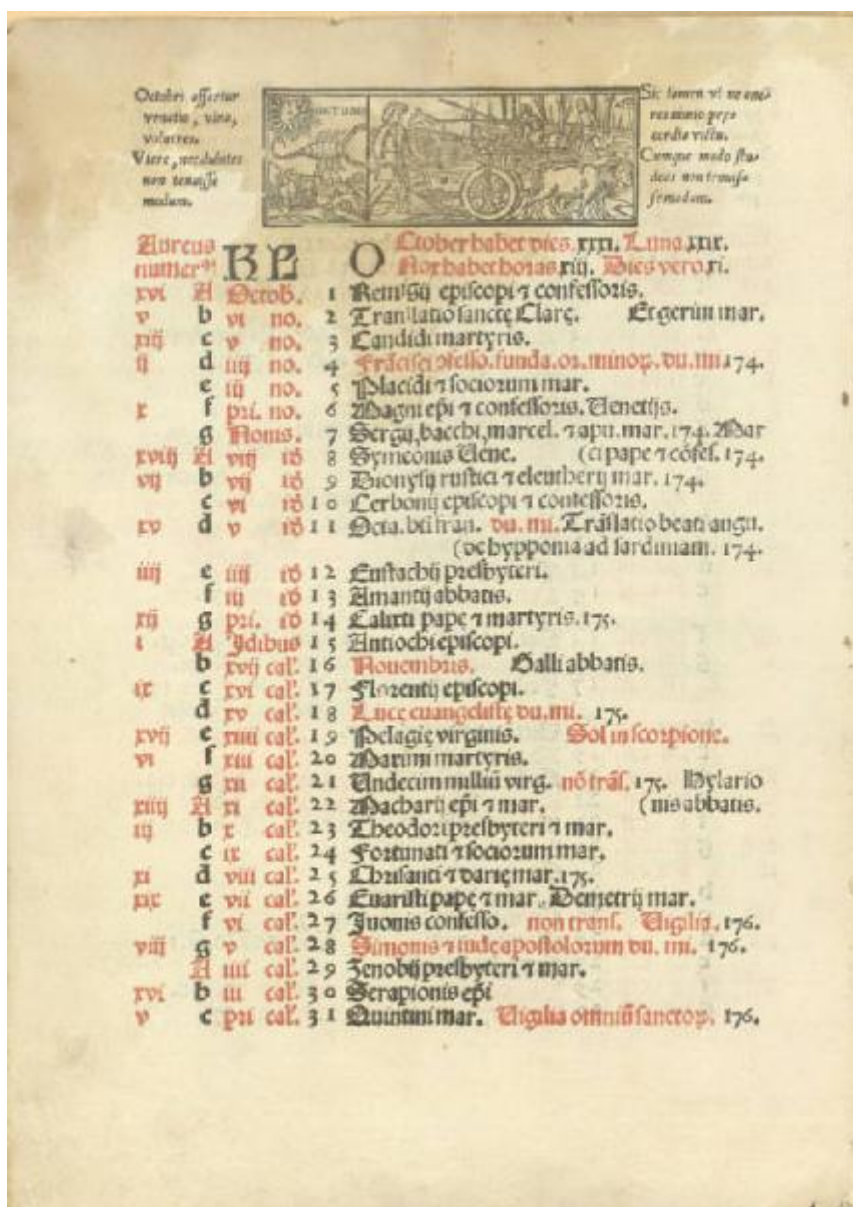 Octobri offertur
venatio, vina,
volucres.
Vivere, nec dubites
non tenuisse
modum.
Sic tamen vt ne
nimio
cordia victu.
modo
non
Aureus
numerꝰ KL
October habet dies. xxxi. Luna. xxix.
Nox habet horas. xiij. Dies vero. xi.
xvi A Octob. 1 Remigij episcopi ⁊ confessoris.
v b vi no. 2 Translatio sanctę Clarę. Et gerini mar.
xiij c v no. 3 Candidi martyris.
ij d iiij no. 4 funda. or. minoꝝ. du. mi. 174.
e iij no. 5 Placidi ⁊ sociorum mar.
x f pri. no. 6 Magni ep̄i ⁊ confessoris. Uenetijs.
g Nonis. 7 Sergij, bacchi, marcel. ⁊ apu. mar. 174. Mar
xviij A viij id 8 Symeonis Uene. (ci pape ⁊ cōfes. 174.
vij b vij id 9 Dionysij rustici ⁊ eleutherij mar. 174.
c vi id 10 Cerbonij episcopi ⁊ confessoris.
xv d v id 11 Octa. bti fran. du. mi. Trāslatio beati augu.
(de hypponia ad sardiniam. 174.
iiij e iiij id 12 Eustachij presbyteri.
f iij id 13 Amantij abbatis.
xij g pri. id 14 Calixti pape ⁊ martyris. 175.
i A Jdibus 15 Antiochi episcopi.
b xvij cal'. 16 Nouembris. Galli abbatis.
ix c xvi cal'. 17 Florentij episcopi.
d xv cal'. 18 Lucę euangelistę du. mi. 175.
xvij e xiiij cal'. 19 Pelagię virginis. Sol in scorpione.
vi f xiii cal'. 20 Marum martyris.
g xii cal'. 21 Undecim milliū virg. nō trās. 175. Hylario
xiiij A xi cal'. 22 Macharij ep̄i ⁊ mar. (nis abbatis.
iij b x cal'. 23 Theodori presbyteri ⁊ mar.
c ix cal'. 24 Fortunati ⁊ sociorum mar.
xi d viii cal'. 25 Chrisanti ⁊ darię mar. 175.
xix e vii cal'. 26 Euaristi papę ⁊ mar. Demetrij mar.
f vi cal'. 27 Juonis confesso. non trans. Uigilia. 176.
viij g v cal'. 28 Simonis ⁊ iude apostolorum du. mi. 176.
A iiii cal'. 29 Zenobij presbyteri ⁊ mar.
xvi b iii cal'. 30 Serapionis ep̄i
v c pri cal'. 31 Quintini mar. Uigilia omniū sanctoꝝ. 176.